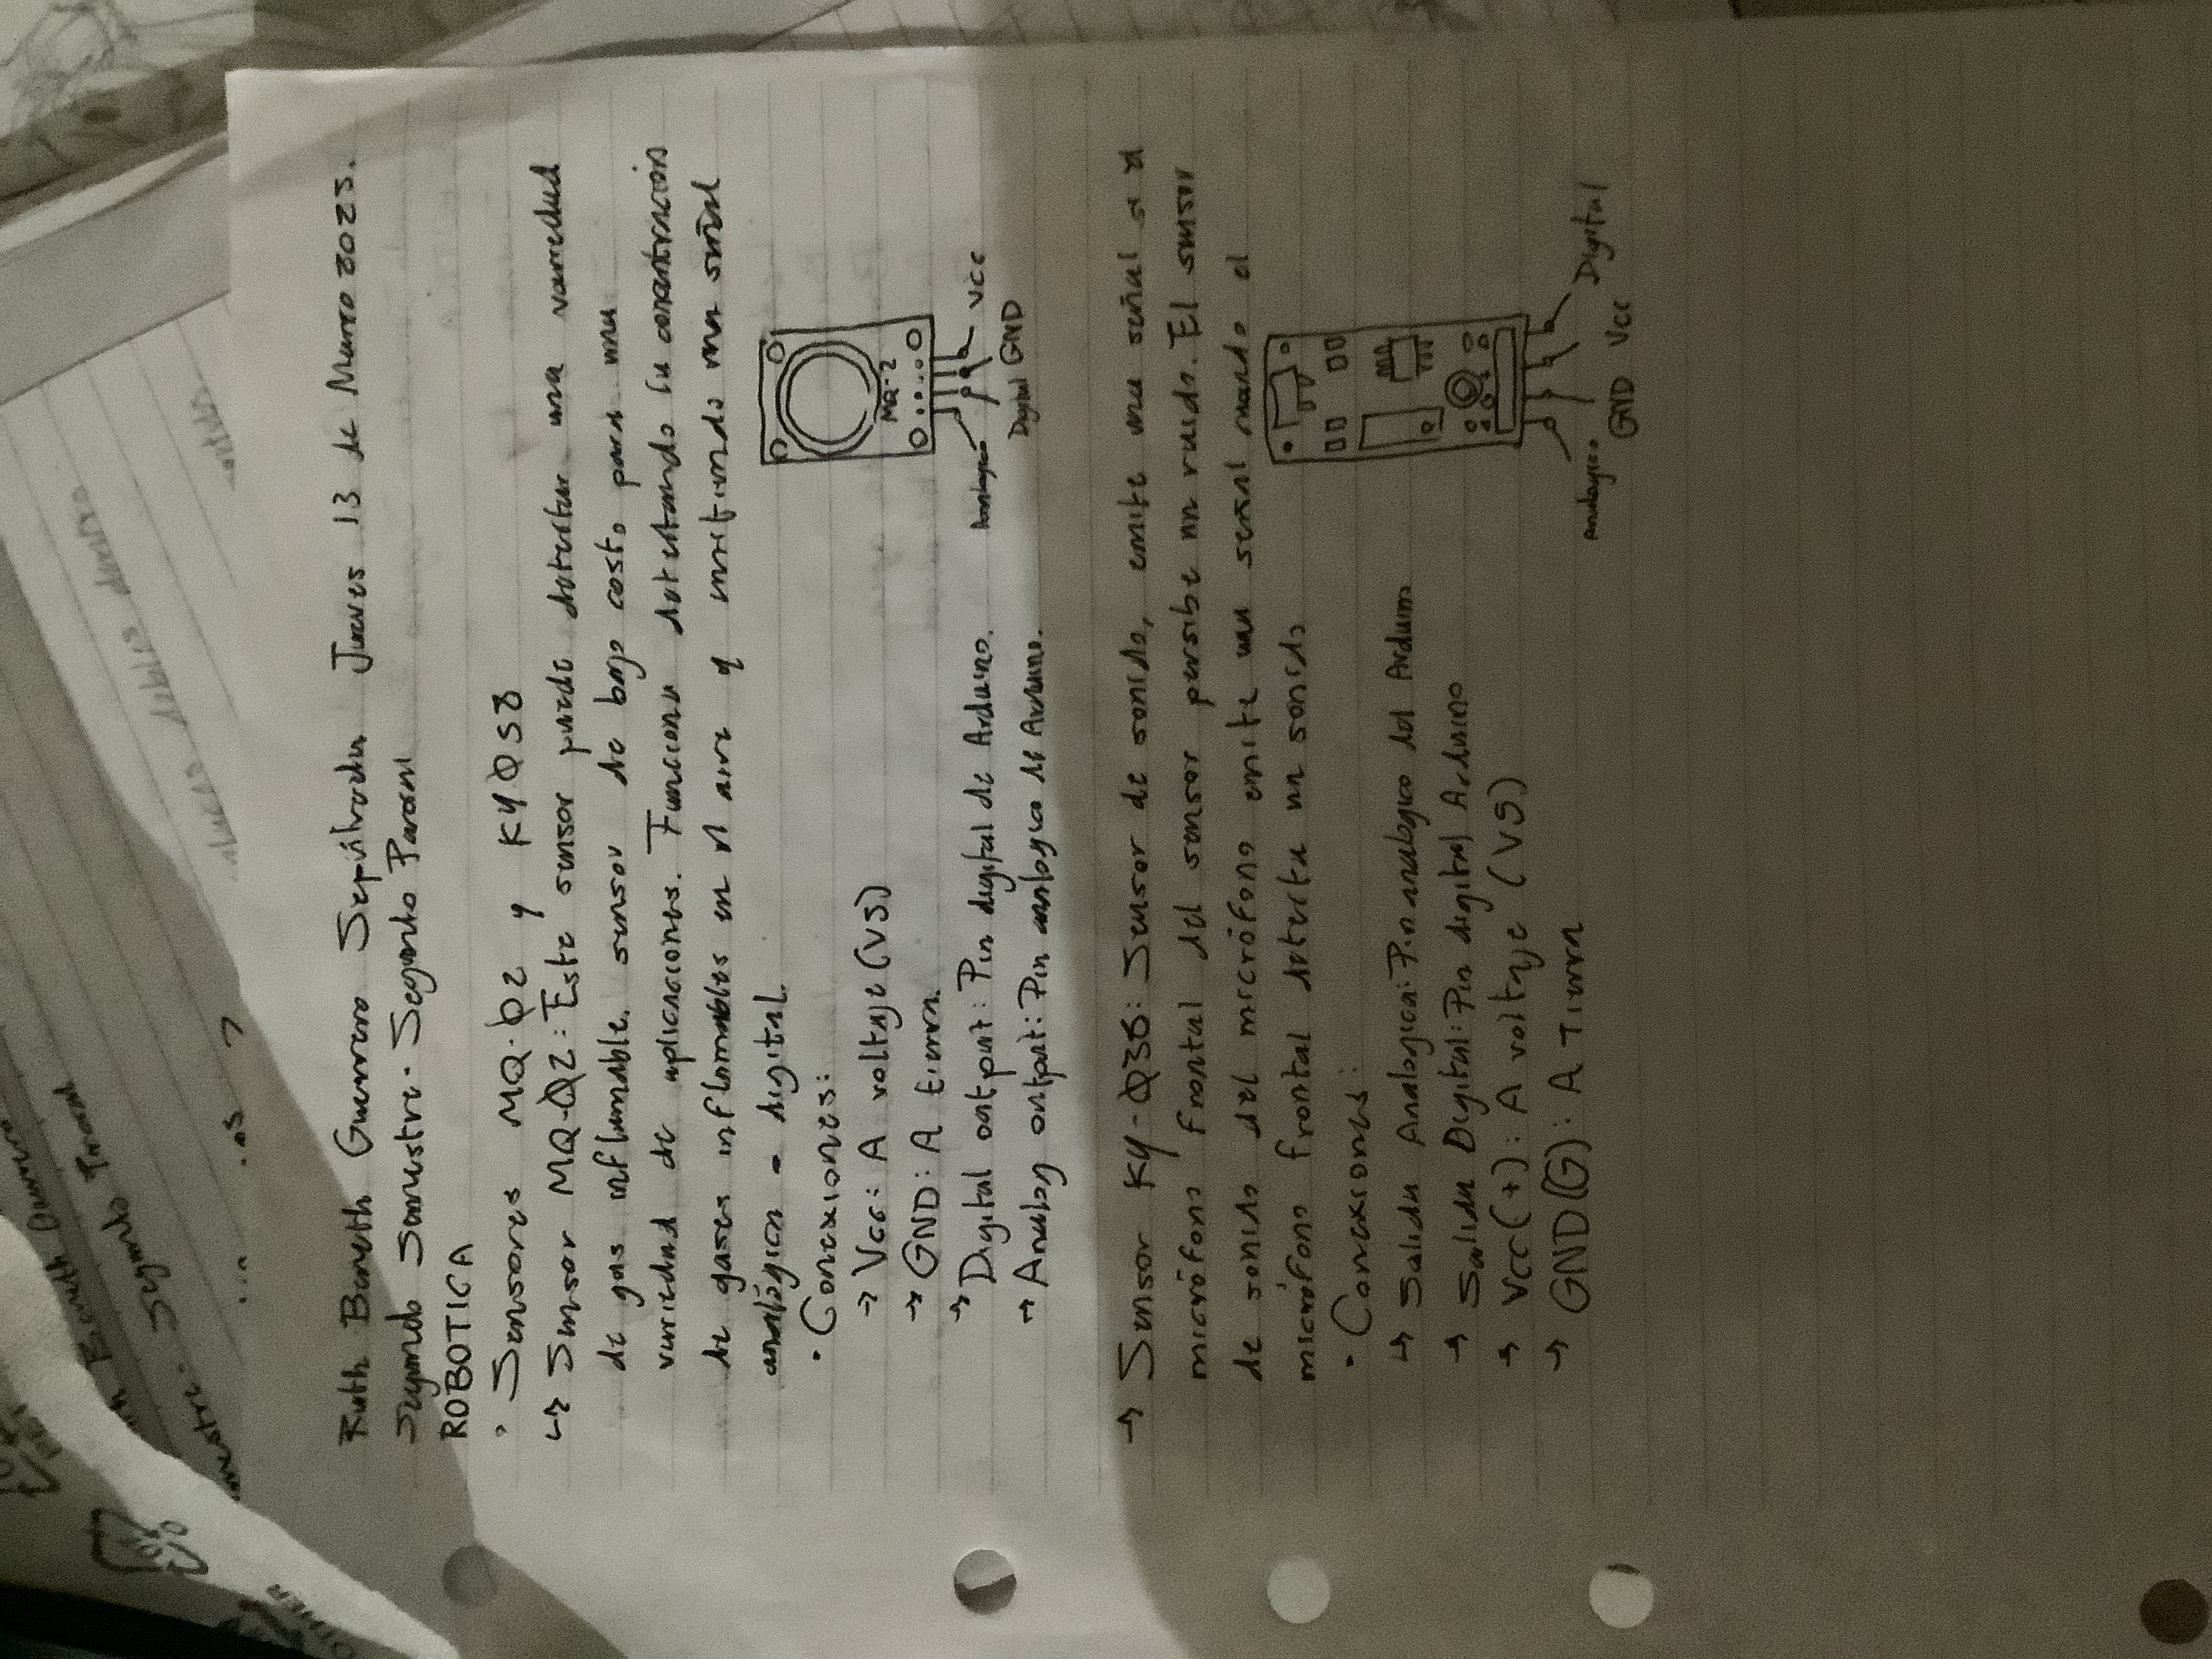 Ruth Beneth Guerrero Sepúlveda Jueves 13 de Marzo 2025.
Segundo Semestre. Segundo Parcial
ROBOTICA
• Sensores MQ-02 y KY038
↳ Sensor MQ-02: Este sensor puede detectar una variedad
de gas inflamable. sensor de bajo costo para una
variedad de aplicaciones. Funciona detectando la concentración
de gases inflamables en el aire y emitiendo una señal
analógica o digital.
• Conexiones:
→ Vcc: A voltaje (V5)
→ GND: A tierra.
→ Digital output: Pin digital de Arduino.
→ Analog output: Pin analogico de Arduino.
MQ-2
Analogico
Digital
GND
Vcc
→ Sensor KY-038: Sensor de sonido, emite una señal si el
micrófono frontal del sensor persibe un ruido. El sensor
de sonido del micrófono emite una señal cuando el
micrófono frontal detecta un sonido
• Conexiones:
↳ Salida Analogica: Pin analogico del Arduino
→ Salida Digital: Pin digital Arduino
→ Vcc(+): A voltaje (V5)
→ GND(G): A Tierra
Analogico
GND
Vcc
Digital